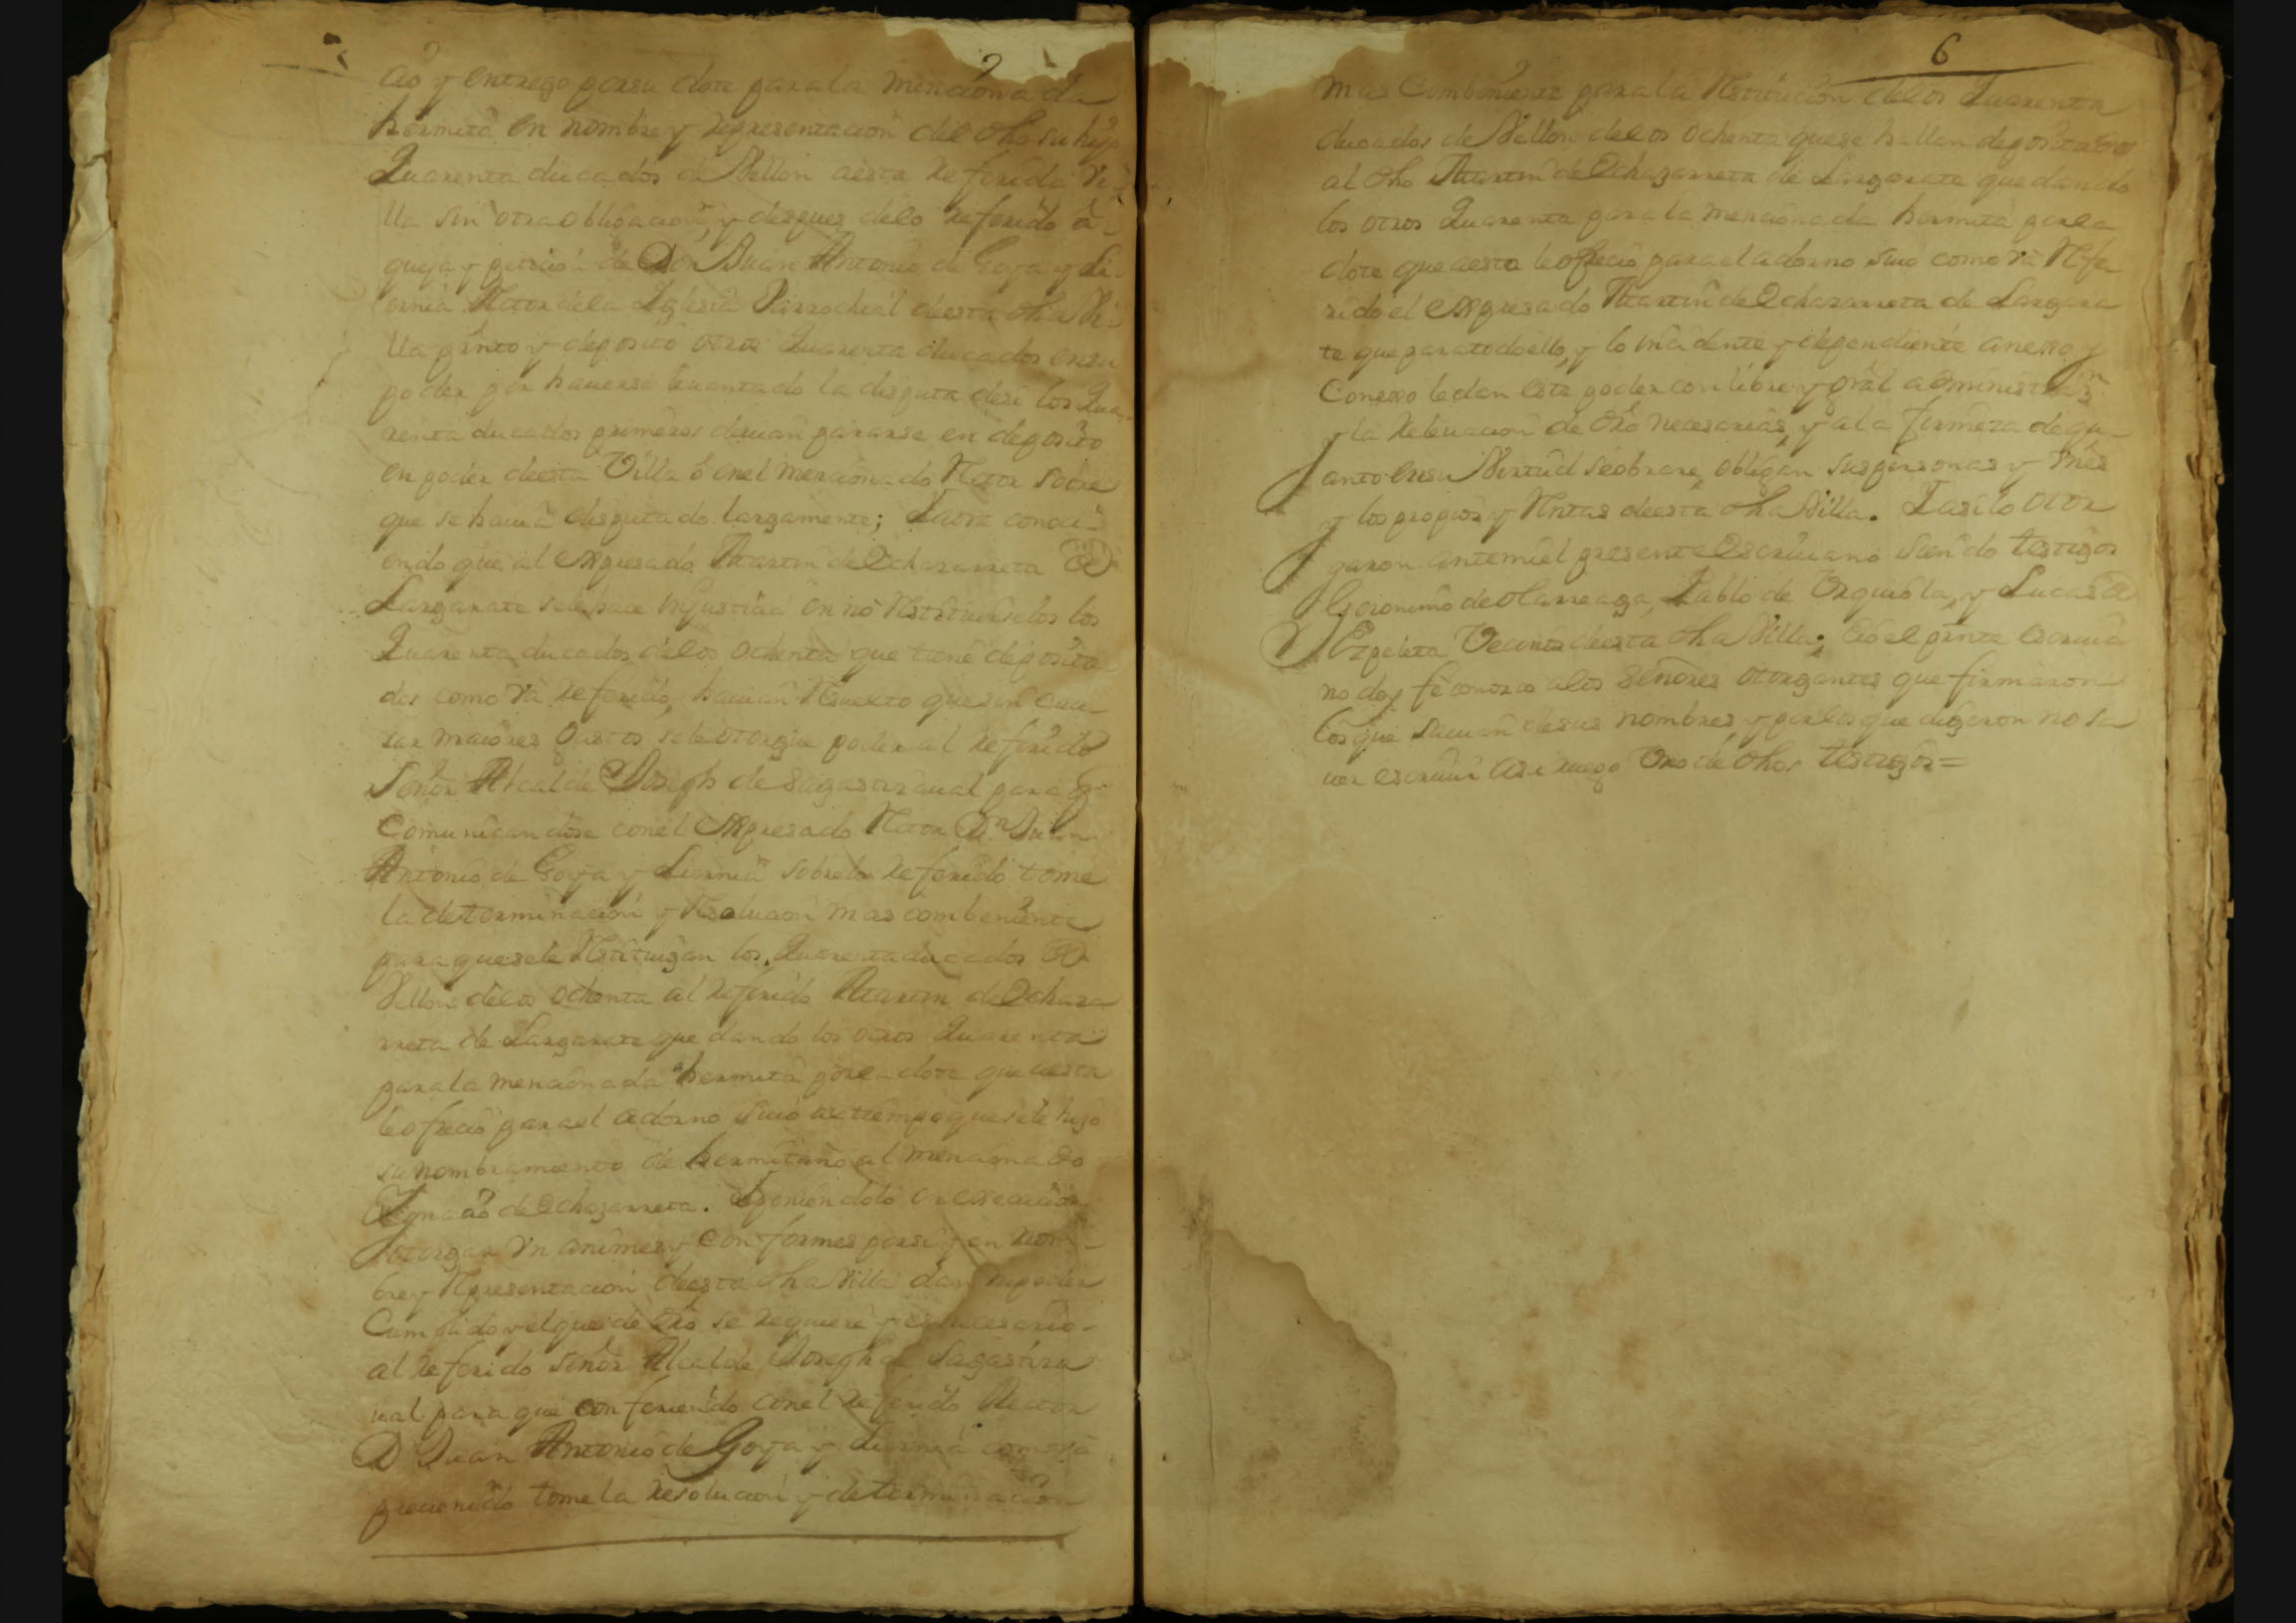 cio y entrego por su dote para la mencionada
hermita en nombre y representacion del dho su hijo
Quarenta ducados de Vellon a esta referida Vi-
lla sin otra obligacion, y despues de lo referido a
queja y peticion de Don Juan Antonio de Goya y Li-
ernia Retor de la Iglesia Parrochial de esta dha Vi-
lla junto y deposito otros Quarenta ducados en su
poder por hauerse leuantado la disputa de si los Qua-
renta ducados primeros deuian pararse en deposito
en poder de esta Villa o en el mencionado Retor sobre
que se hauia disputado largamente; Y aora conoci-
endo que al expresado Martin de Echazarreta de
Larzarate se le hace injusticia en no restituirselos los
Quarenta ducados de los ochenta que tiene deposita-
dos como va referido, hauian resuelto que sin cau-
sar maiores gastos se le otorgue poder al referido
Señor Alcalde Joseph de Sagastizaual para q
comunicandose con el expresado Retor Dn Juan
Antonio de Goya y Liernia sobre lo referido tome
la determinacion y resolucion mas combeniente
para que se le restituigan los Quarenta ducados de
Vellon de los ochenta al referido Martin de Echaza
rreta de Larzarate quedando los otros Quarenta
para la mencionada hermita por la dote que a esta
le ofrecio para el adorno suio al tiempo que se le hizo
su nombramiento de hermitaño al mencionado
Ignacio de Echazarreta. Y poniendolo en execucion
otorgan Vnanimes y conformes por si y en nom-
bre y representacion de esta dha Villa dan su poder
cumplido y el que de dro se requiere y es necesario
al referido Señor Alcalde Joseph de Sagastiza
ual para que confiriendo con el referido Rector
D Juan Antonio de Goya y Liernia como va
preuenido tome la resolucion y determinacion
6
mas combeniente para la restitucion de los Quarenta
ducados de Vellon de los ochenta que se hallan depositados
al dho Martin de Echazarreta de Larzarate quedando
los otros Quarenta para la mencionada hermita por la
dote que a esta le ofrecio para el adorno suio como va refe-
rido el expresado Martin de Echazarreta de Larzara
te que para todo ello, y lo incidente y dependiente anexo y
conexo le dan este poder con libre y gral administraon
y la releuacion de dro necesarias, y a la firmeza de qu-
anto en su Virtud se obrare, obligan sus personas y vnes
y los propios y rentas de esta dha Villa. Y asi lo otor
garon ante mi el presente escriuano siendo testigos
Geronimo de Olarreaga, Pablo de Vrquiola, y Lucas de
Ezpeleta Vecinos de esta dha Villa; E io el prnte escriua
no doy fe conozco a los Señores otorgantes que firmaron
los que sauian de sus nombres, y por los que digeron no sa
uer escriuir a su ruego Vno de dhos testigos=